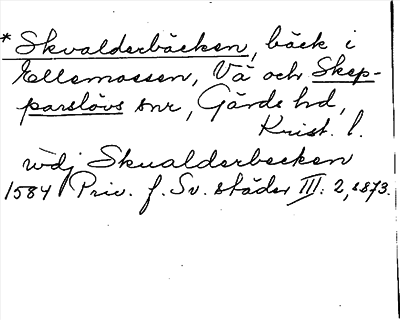 * Skvalderbäcken, bäck i
Ellemossen, Vä och Skep-
parslövs snr, Gärds hd,
Krist. l.
wdj Skualderbecken
1584 Priv. f. Sv. städer III: 2, s873.